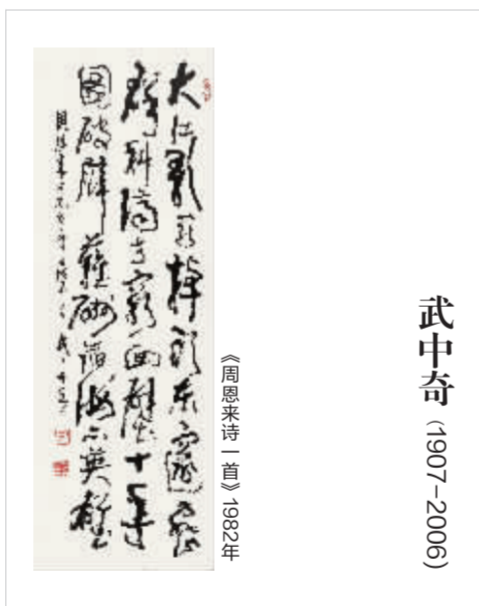 武中奇（1907-2006）
《周恩来诗一首》1982年
大江歌罷掉頭東邃密
群科濟世窮面壁十年
圖破壁難酬蹈海亦英雄